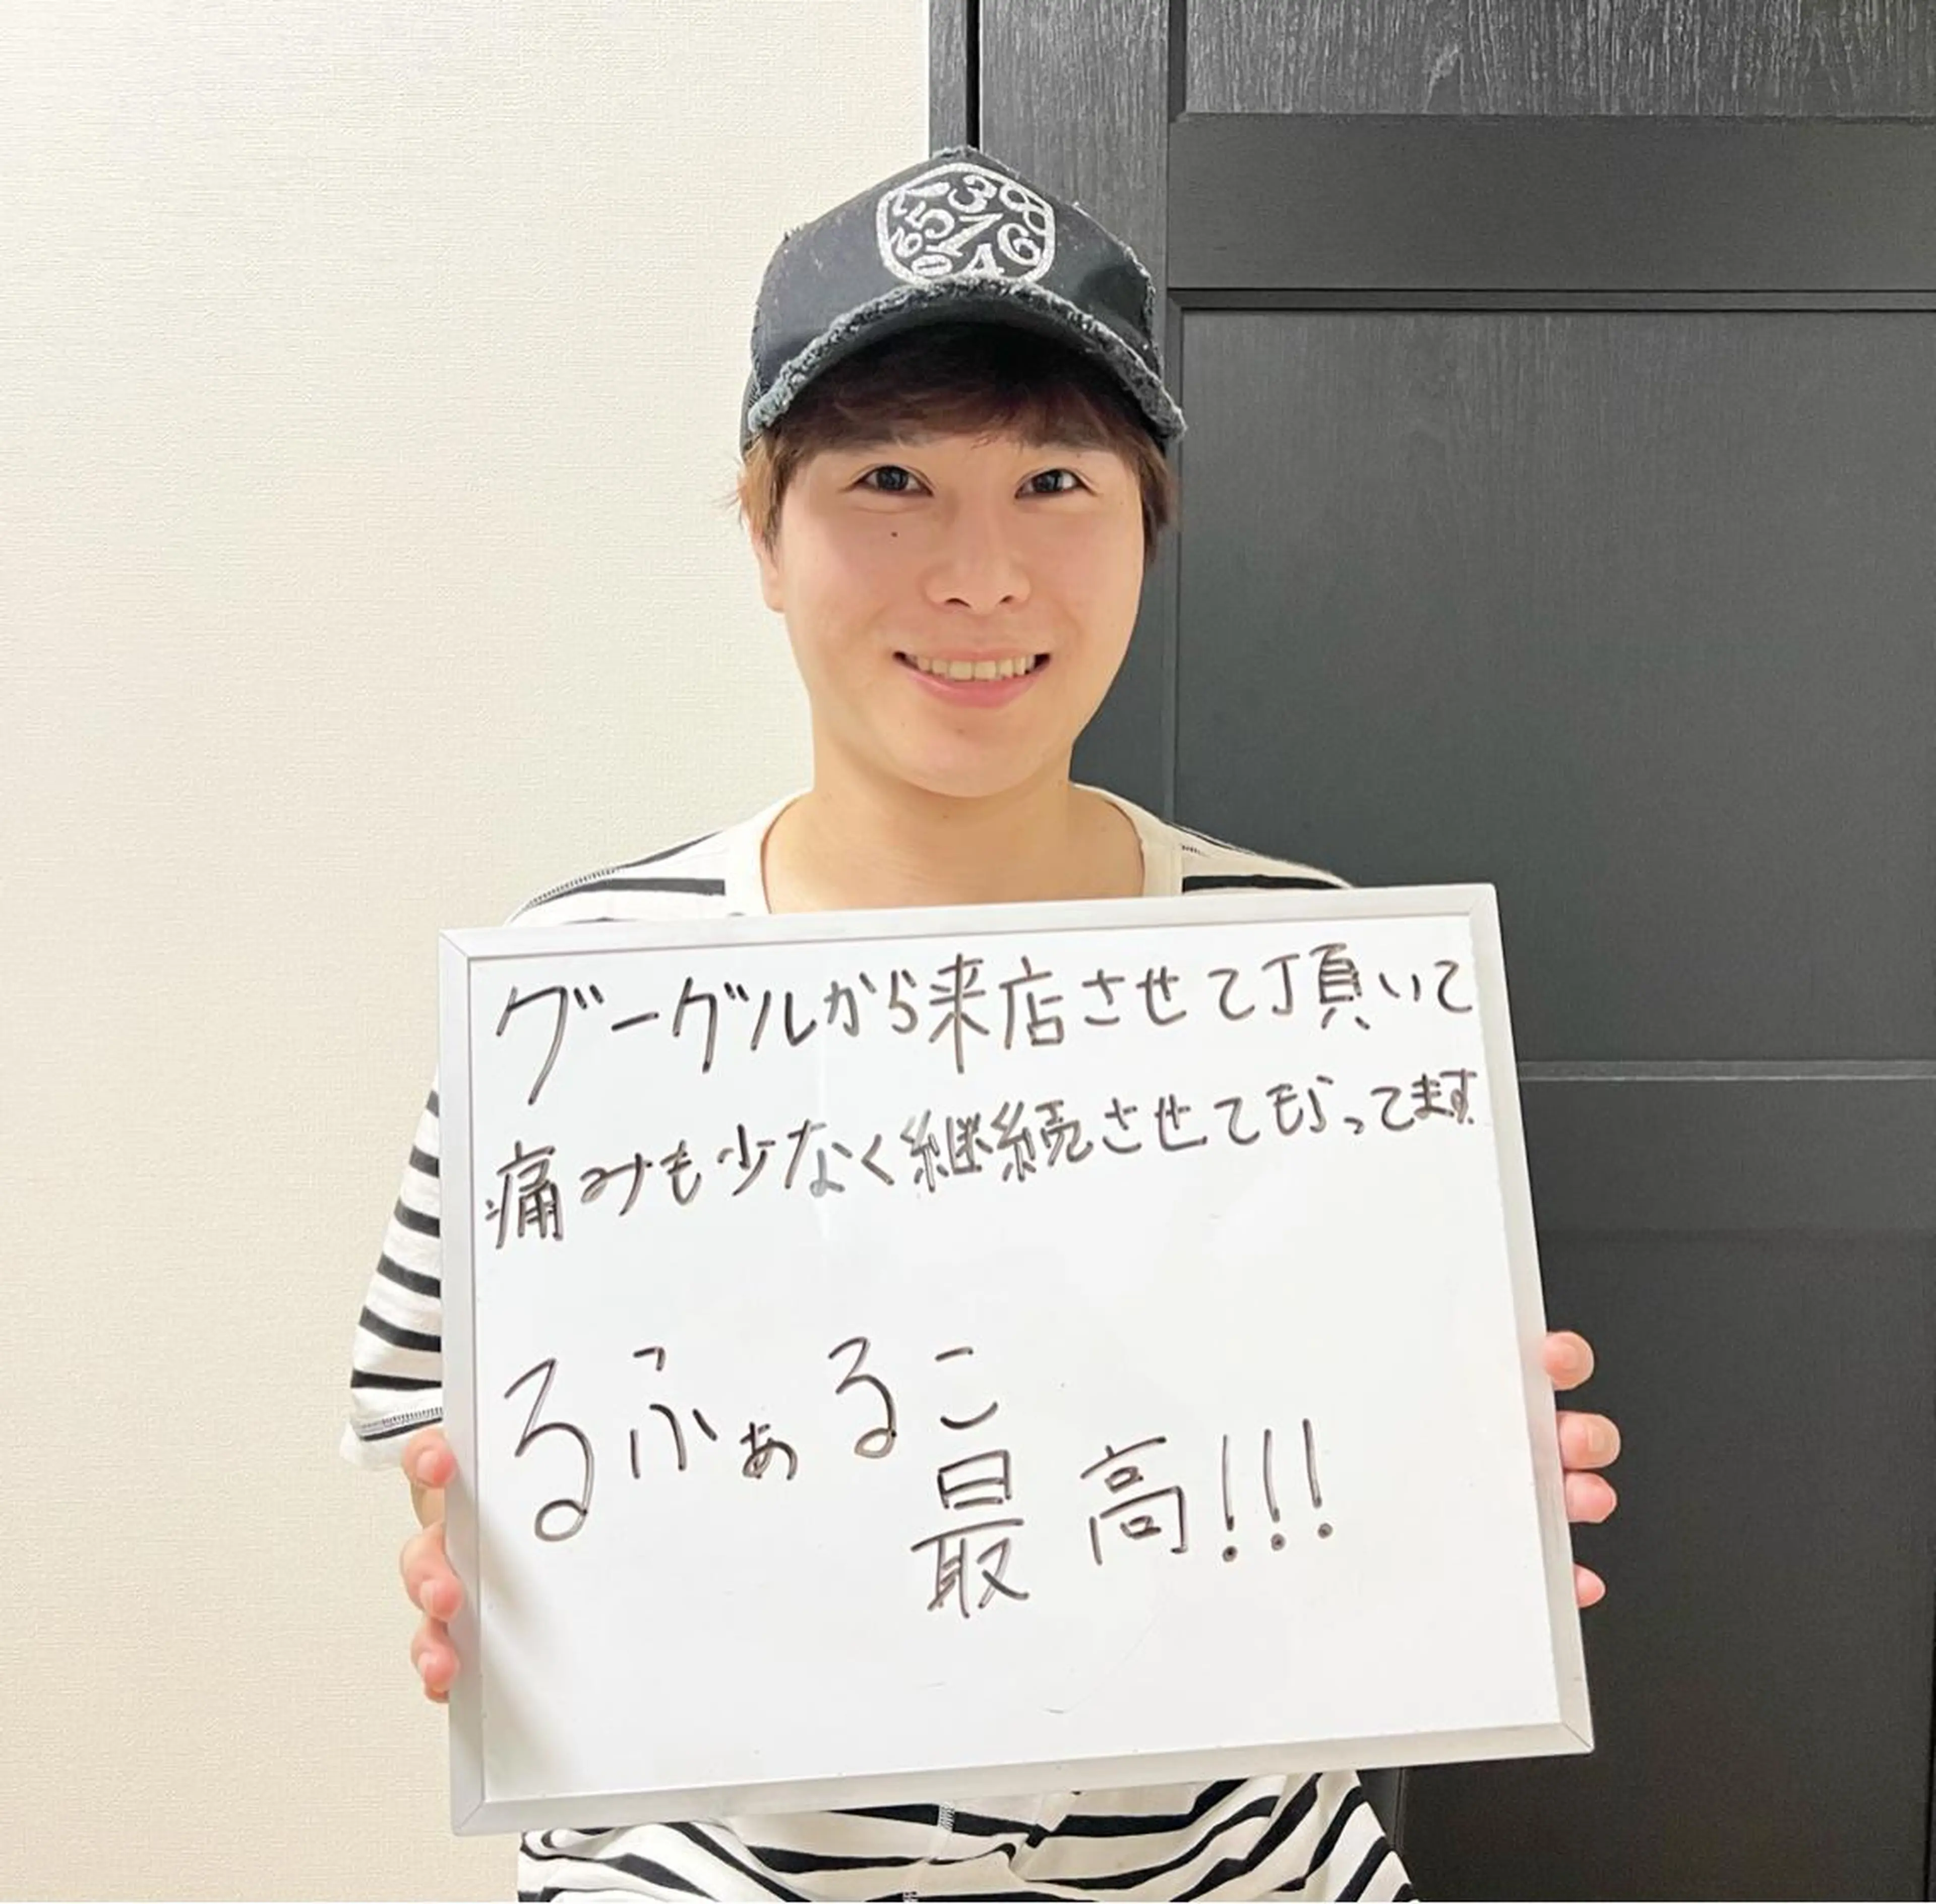 グーグルから来店させて頂いて
痛みも少なく継続させてもらってます
るふぁるこ
最高!!!